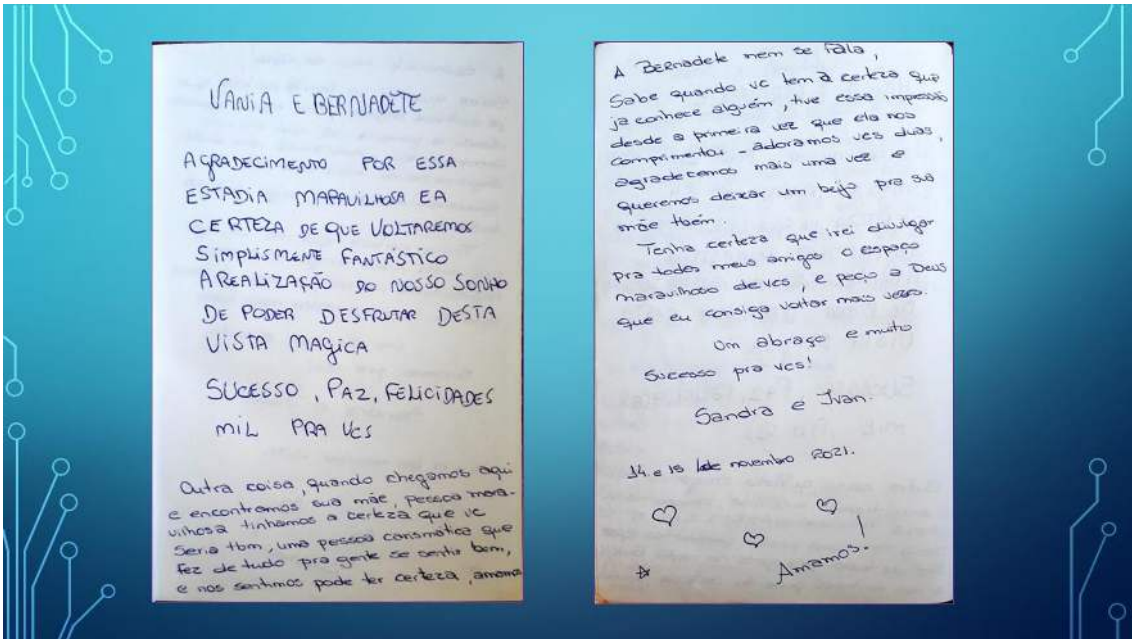 VANIA E BERNADETE
AGRADECIMENTO POR ESSA
ESTADIA MARAVILHOSA E A
CERTEZA DE QUE VOLTAREMOS
SIMPLISMENTE FANTÁSTICO
A REALIZAÇÃO DO NOSSO SONHO
DE PODER DESFRUTAR DESTA
VISTA MAGICA
SUCESSO, PAZ, FELICIDADES
MIL PRA VCS
Outra coisa, quando chegamos aqui
e encontramos sua mãe, pessoa mara-
vilhosa tinhamos a certeza que vc
seria tbm, uma pessoa carismatica que
fez de tudo pra gente se sentir bem,
e nos sentimos pode ter certeza, amamos
A Bernadete nem se fala,
Sabe quando vc tem a certeza que
ja conhece alguém, tive essa impressão
desde a primeira vez que ela nos
comprimentou - adoramos vcs duas,
agradecemos mais uma vez e
queremos deixar um beijo pra sua
mãe tbém.
Tenha certeza que irei divulgar
pra todos meus amigos o espaço
maravilhoso de vcs, e peço a Deus
que eu consiga voltar mais vezes.
Um abraço e muito
sucesso pra vcs!
Sandra e Ivan.
14 e 15 de novembro 2021.
Amamos!